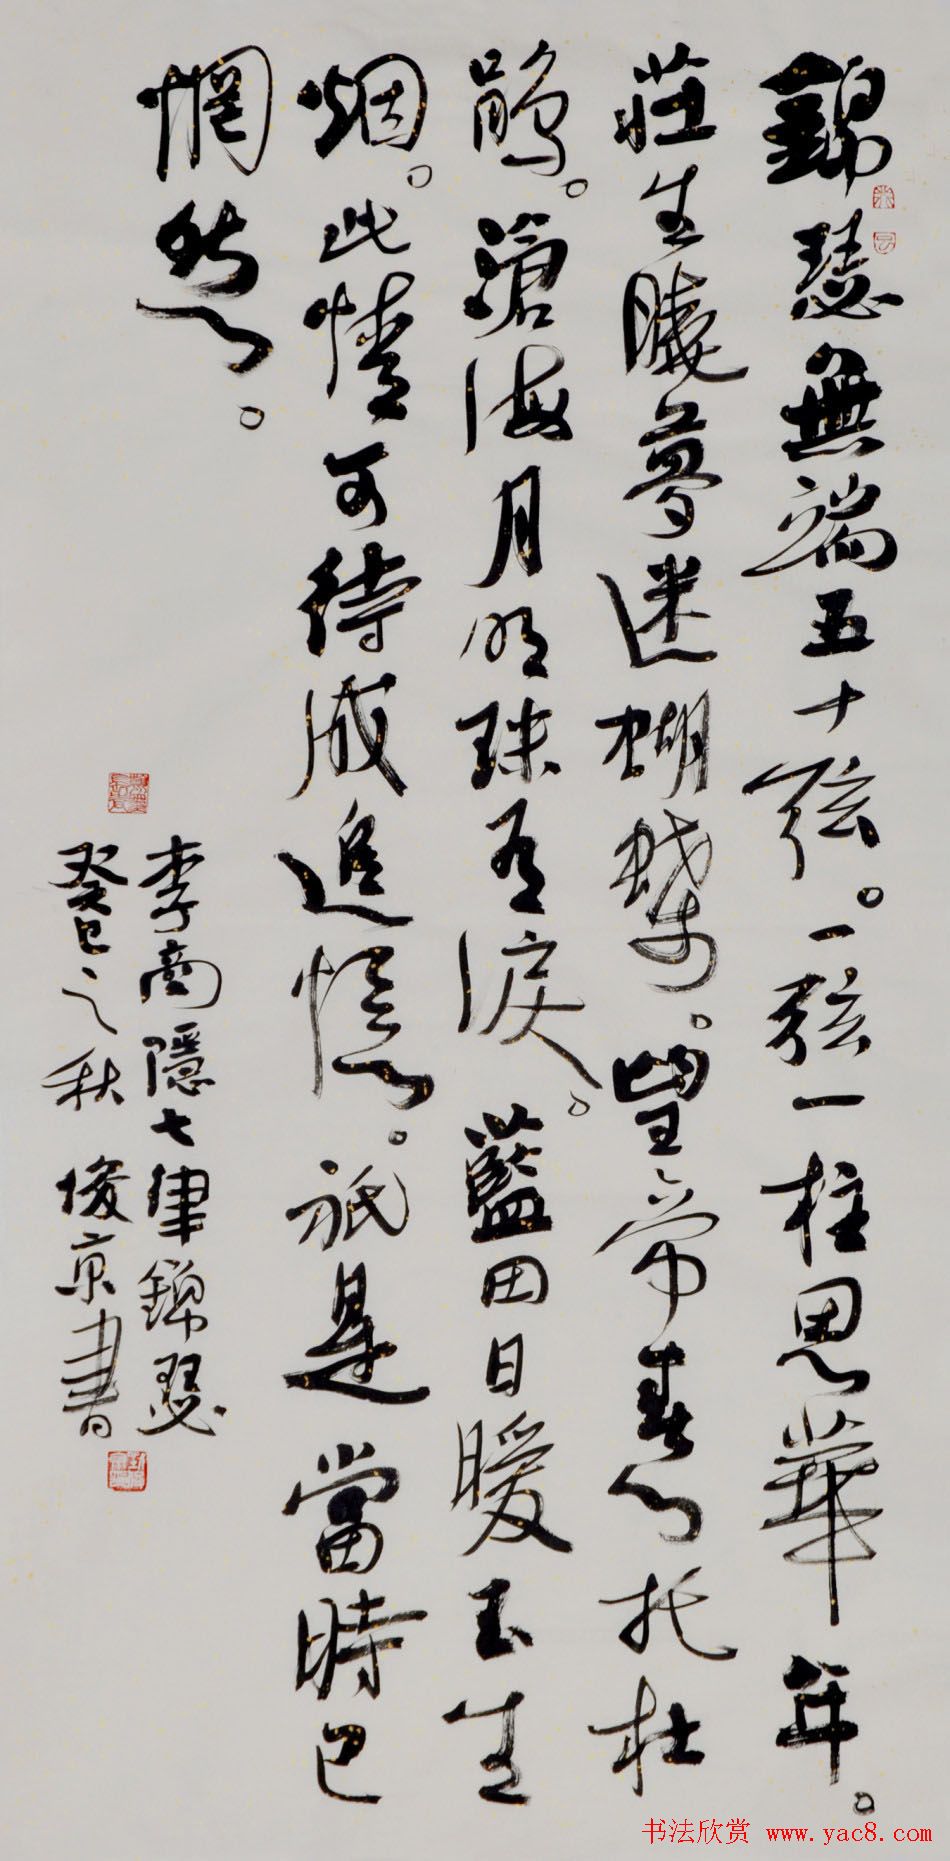 錦瑟無端五十弦。一弦一柱思華年。
莊生曉夢迷蝴蝶。望帝春心托杜
鹃。滄海月明珠有淚。藍田日暖玉生
烟。此情可待成追憶。祇是當時已
惘然。
李商隱七律錦瑟
癸巳之秋 俊京書
书法欣赏 www.yac8.com